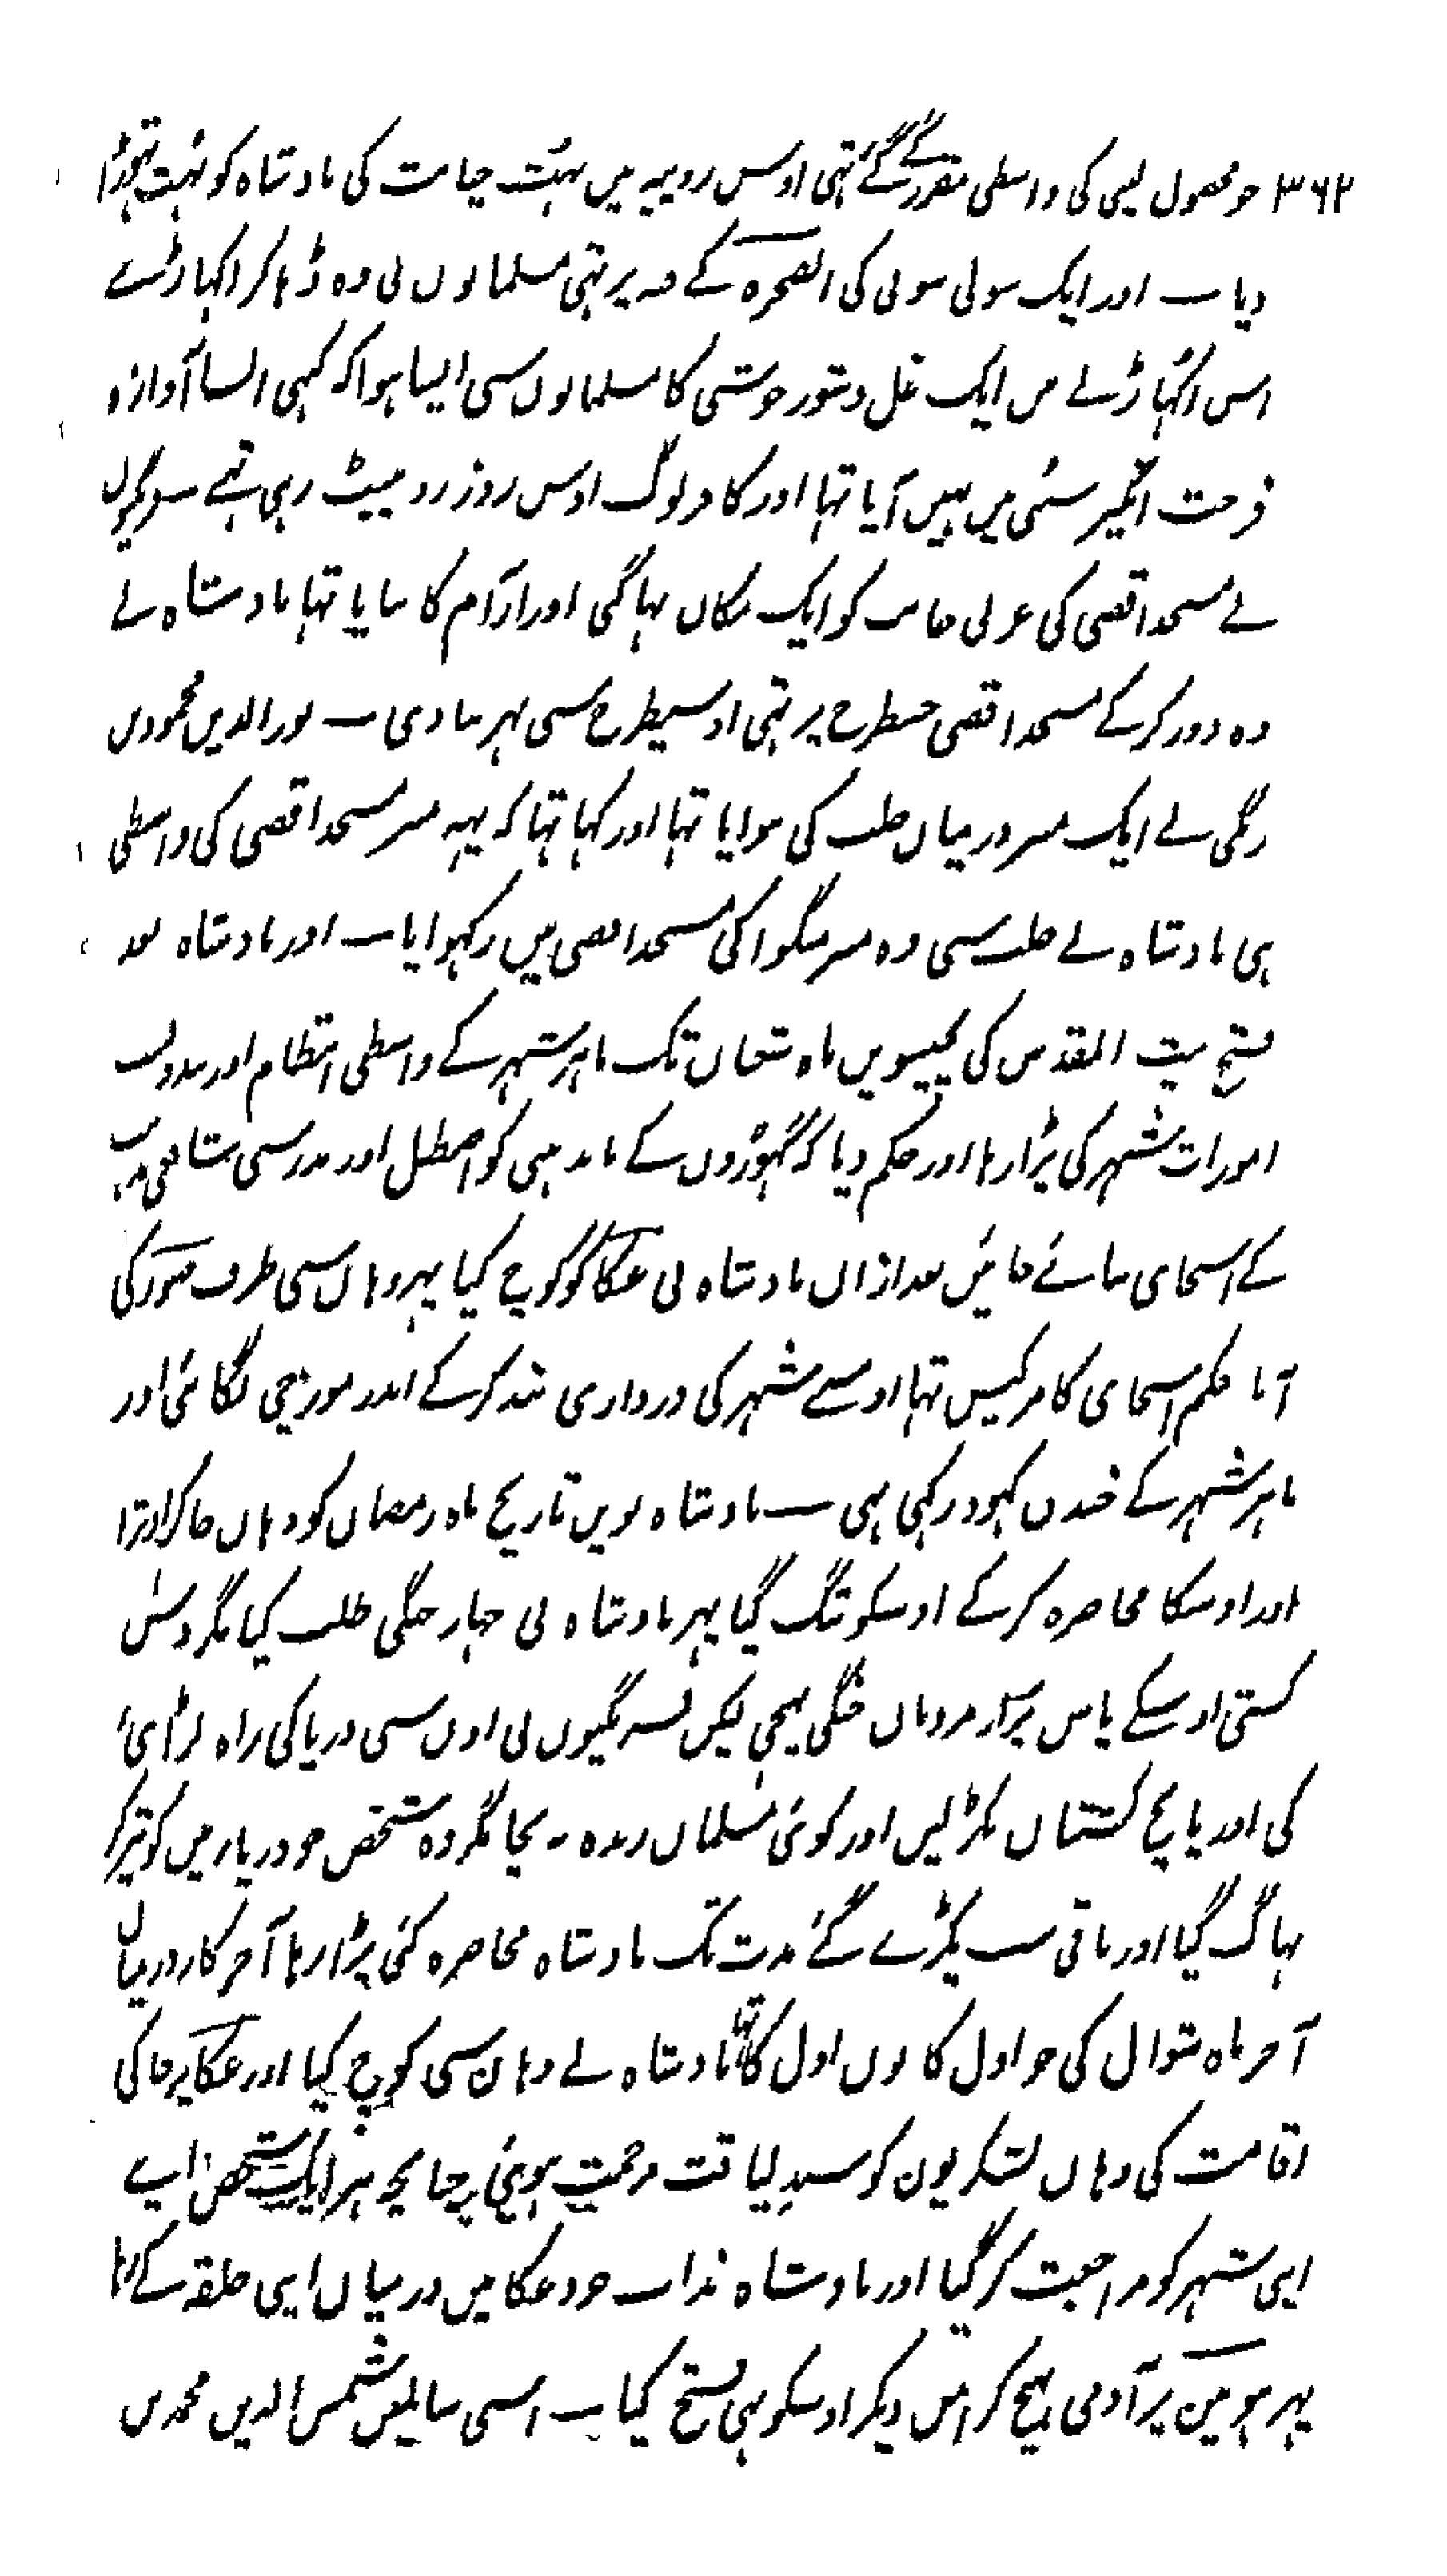 ۳۶۲ جو محصول لینی کی واسطی مقرر کئے گئے تہی اوس روپیہ میں بہت خیانت کی بادشاہ کو بہت تہوڑا
دیا ۔ اور ایک سولی سونی کی الصخرہ کے قبہ پر تہی مسلمانوں نی وہ ڈہا کر اکہاڑنے
اس اکہاڑنے میں ایک غل و شور خوشی کا مسلمانوں سی ایسا ہوا کہ کبہی ایسا آوازہ
فرحت انگیز سننی میں نہیں آیا تہا اور کافر لوگ اوس روز رو پیٹ رہی تہے ۔ فرنگیوں
نے مسجد اقصی کی غربی جانب کو ایک مکان بہاگنی اور آرام کا بنایا تہا بادشاہ نے
وہ دور کر کے مسجد اقصی جسطرح پر تہی اوسیطرح سی پہر بنا دی ۔ نور الدین محمود بن
زنگی نے ایک منبر درمیان حلب کی بنوایا تہا اور کہا تہا کہ یہہ منبر مسجد اقصی کی واسطی
ہی بادشاہ نے حلب سی وہ منبر منگوا کی مسجد اقصی میں رکہوایا ۔ اور بادشاہ بعد
فتح بیت المقدس کی پچیسویں ماہ شعبان تک باہر شہر کے واسطی انتظام اور بندوبست
امورات شہر کی پڑا رہا اور حکم دیا کہ گہوڑوں کے باندہنی کو اصطبل اور مدرسی شافعی مذہب
کے اسجای بنائے جائیں بعد ازاں بادشاہ نی عکا کو کوچ کیا پہر وہاں سی طرف صور کی
آیا حکم اسجای کا مرکیس تہا اوسے شہر کی دروازی بند کر کے اندر مورچی لگائی اور
باہر شہر کے خندق کہود رکہی تہی ۔ بادشاہ نویں تاریخ ماہ رمضان کو وہاں جا کر اوترا
اور اوسکا محاصرہ کر کے اوسکو تنگ کیا پہر بادشاہ نی جہاز جنگی طلب کیا مگر دس
کشتی اوسکے پاس پر از مردمان جنگی پہنچی لیکن فرنگیوں نی اون سی دریا کی راہ لڑائی
کی اور پانچ کشتیاں پکڑ لیں اور کوئی مسلمان زندہ نہ بچا مگر وہ شخص جو دریا میں کو تیر کر
بہاگ گیا اور باقی سب پکڑے گئے مدت تک بادشاہ محاصرہ کئی پڑا رہا آخر کار درمیان
آخر ماہ شوال کی جو اول کانون اول کا تہا بادشاہ نے وہان سی کوچ کیا اور عکا پر جا کی
اقامت کی وہاں لشکریون کو لیاقت مرحمت ہوئی چنانچہ ہر ایک شخص اپنے
اپنی شہر کو مراجعت کر گیا اور بادشاہ بذات خود عکا میں درمیان اپنی حلقہ کے رہا
پہر ہونین پر آدمی بہیج کر امن دیکر اوسکو بہی فتح کیا ۔ اسی سالمیں شمس الدین محمد بن